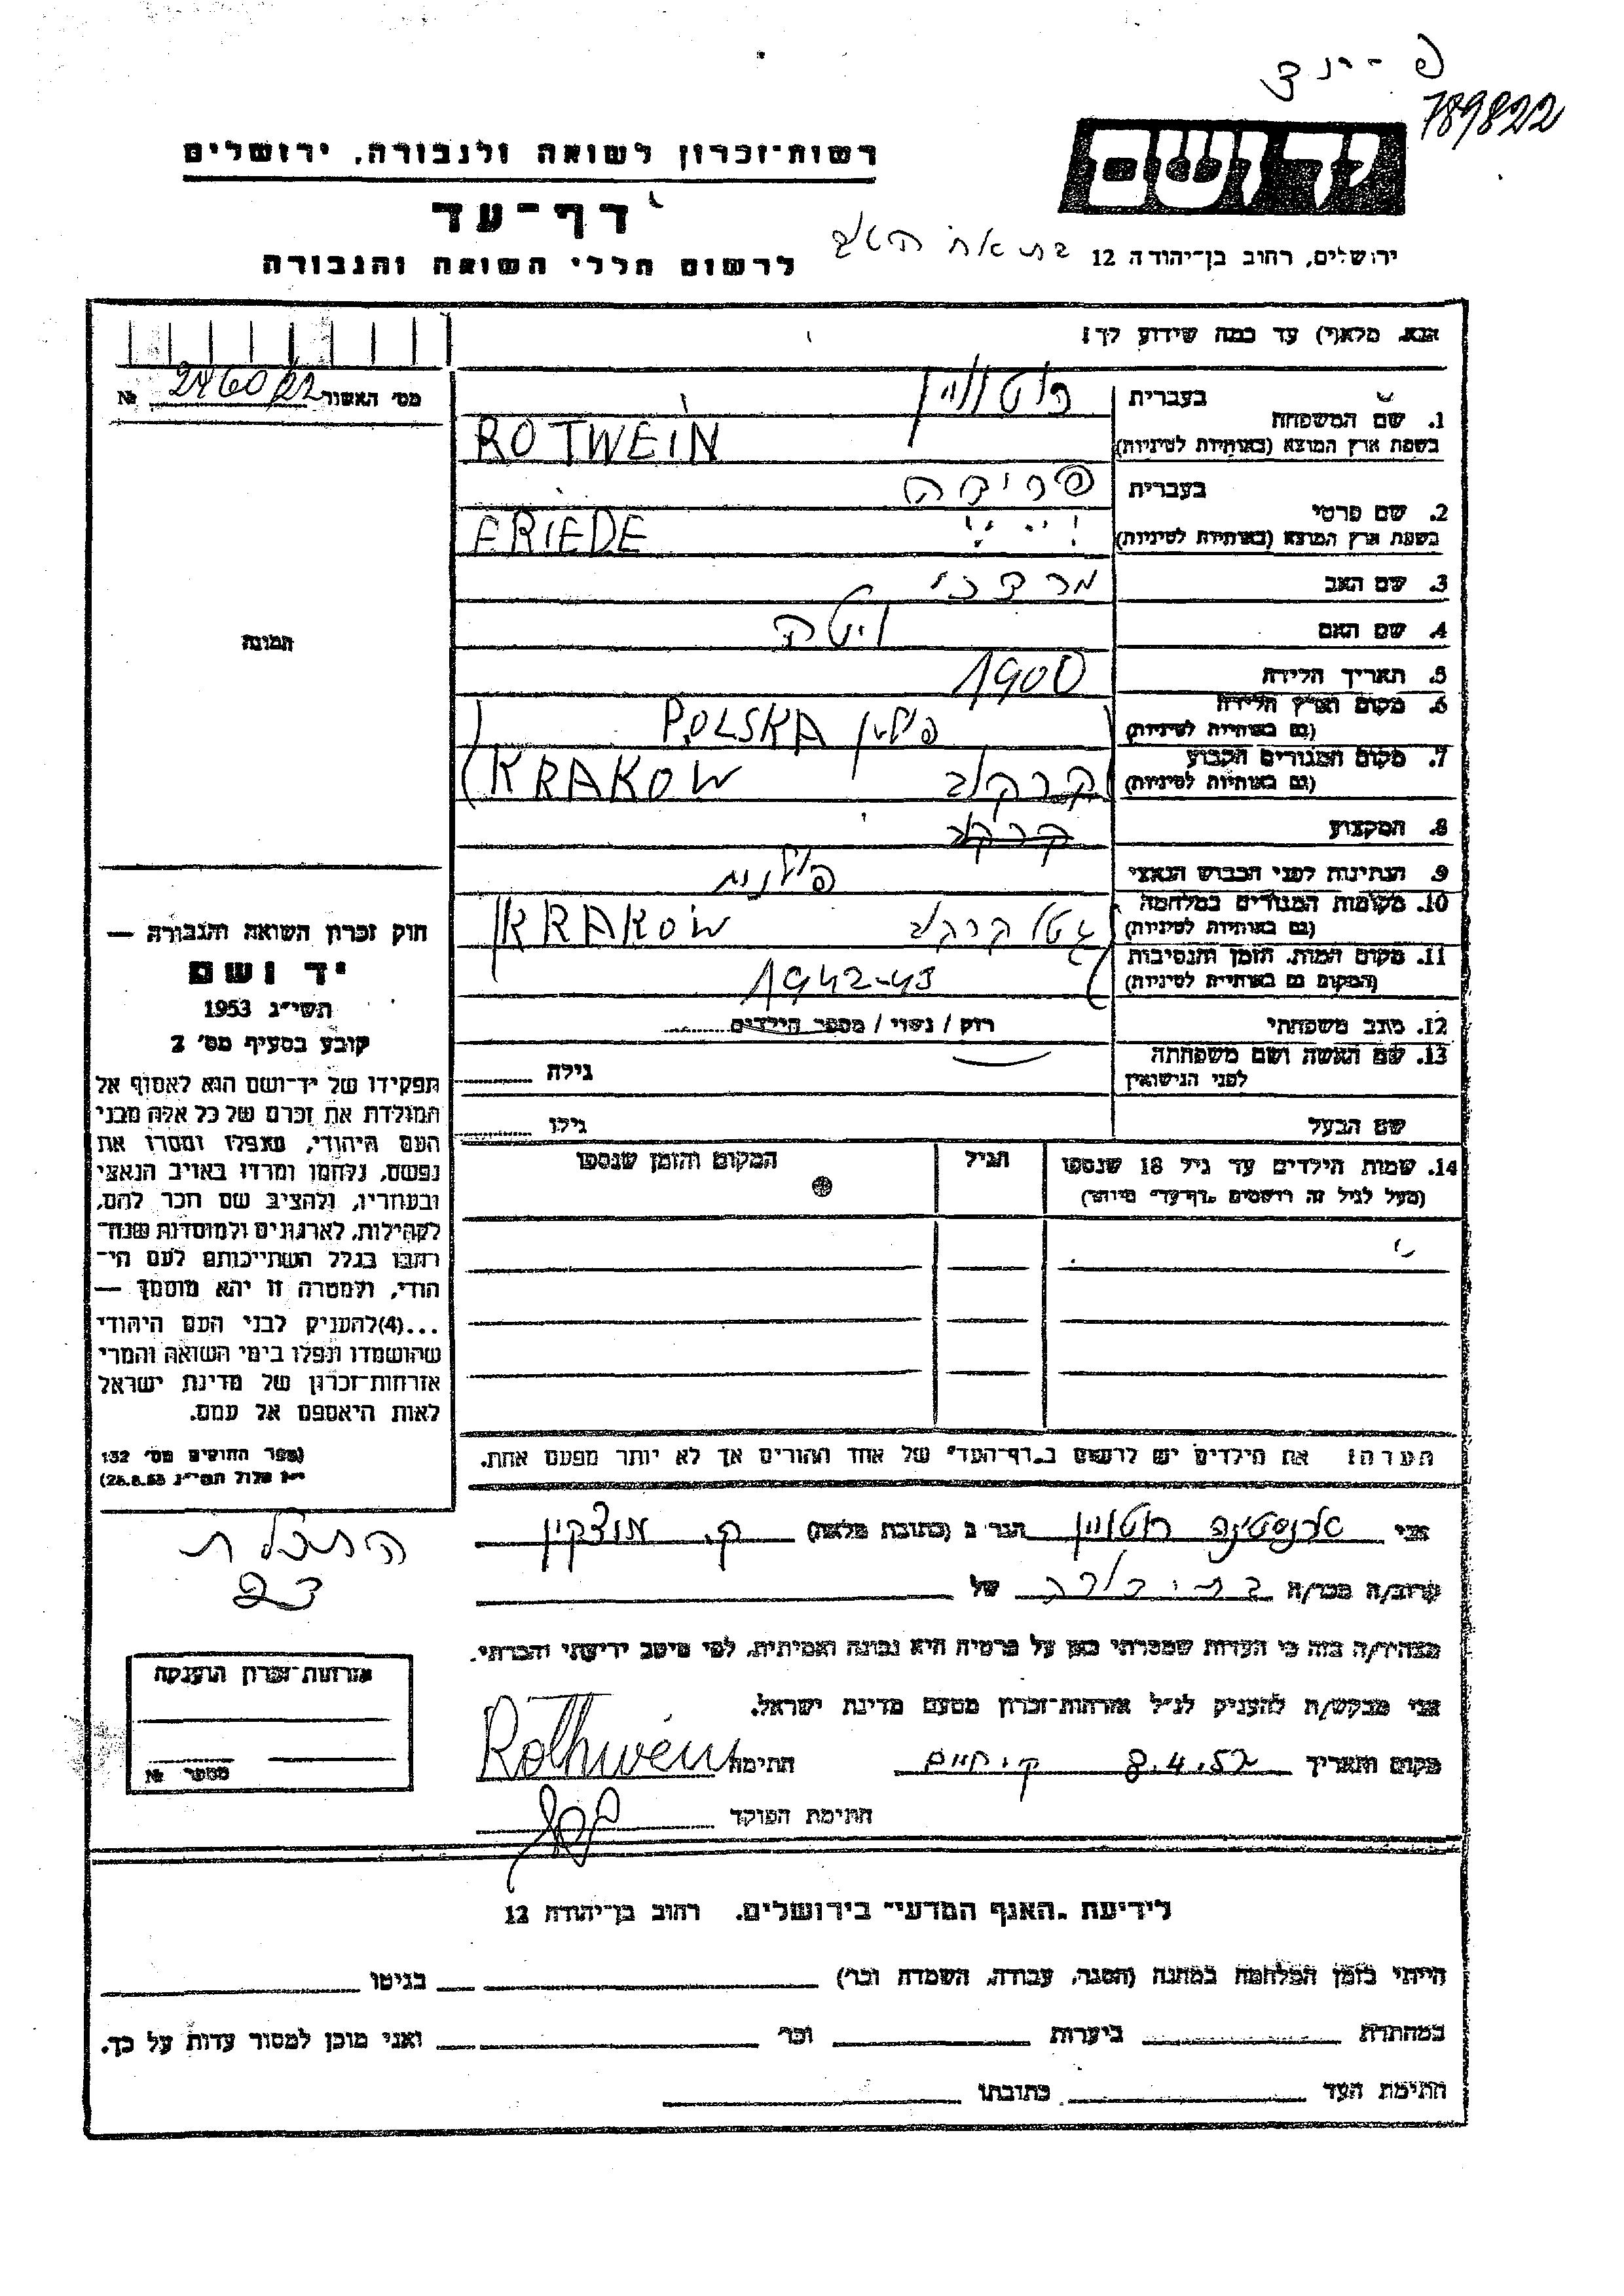 789822
יד ושם
רשות־זכרון לשואה ולגבורה, ירושלים
דף־עד
לרשום חללי השואה והגבורה
ירושלים, רחוב בן־יהודה 12
אנא, מלא(י) עד כמה שידוע לך!
מס' האשור 2460/22 №
1. שם המשפחה
בעברית רוטוויין
בשפת ארץ המוצא (באותיות לטיניות) ROTWEIN
2. שם פרטי
בעברית פרידה
בשפת ארץ המוצא (באותיות לטיניות) FRIEDE
3. שם האב מרדכי
4. שם האם
5. תאריך הלידה 1900
6. מקום וארץ הלידה
(גם באותיות לטיניות) פולין POLSKA
7. מקום המגורים הקבוע
(גם באותיות לטיניות) קרקוב KRAKOW
8. המקצוע קרקוב
9. הנתינות לפני הכבוש הנאצי פולנית
10. מקומות המגורים במלחמה
(גם באותיות לטיניות) גטו קרקוב KRAKOW
11. מקום המות, הזמן והנסיבות
(המקום גם באותיות לטיניות) 1942-43
12. מצב משפחתי רווק / נשוי / מספר הילדים
13. שם האשה ושם משפחתה
לפני הנישואין גילה
שם הבעל גילו
14. שמות הילדים עד גיל 18 שנספו הגיל המקום והזמן שנספו
(מעל לגיל זה רושמים „דף־עד" מיוחד)
הערה: את הילדים יש לרשום ב„דף־העד" של אחד ההורים אך לא יותר מפעם אחת.
תמונה
חוק זכרון השואה והגבורה —
יד ושם
תשי"ג 1953
קובע בסעיף מס' 2
תפקידו של יד־ושם הוא לאסוף אל
המולדת את זכרם של כל אלה מבני
העם היהודי, שנפלו ומסרו את
נפשם, נלחמו ומרדו באויב הנאצי
ובעוזריו, ולהציב שם וזכר להם,
לקהילות, לארגונים ולמוסדות שנח־
רבו בגלל השתייכותם לעם הי־
הודי, ולמטרה זו יהא מוסמך —
...(4)להעניק לבני העם היהודי
שהושמדו ונפלו בימי השואה והמרי
אזרחות־זכרון של מדינת ישראל
לאות היאספם אל עמם.
(ספר החוקים מס' 132
י"ז אלול תשי"ג 28.8.53)
אני ארנסטינה רוטוויין הגר ב (כתובת מלאה) ק. מוצקין
התכלת
23
קרוב/ה מכר/ה בת דודה של
מצהיר/ה בזה כי העדות שמסרתי כאן על פרטיה היא נכונה ואמיתית, לפי מיטב ידיעתי והכרתי.
אני מבקש/ת להעניק לנ"ל אזרחות־זכרון מטעם מדינת ישראל.
מקום ותאריך 8.4.52 ק. חיים חתימה Rothwein
חתימת הפוקד
אזרחות־זכרון הוענקה
מספר №
לידיעת „האגף המדעי" בירושלים. רחוב בן־יהודה 12
הייתי בזמן המלחמה במחנה (הסגר, עבודה, השמדה וכו') בגיטו
במחתרת ביערות וכו' ואני מוכן למסור עדות על כך.
חתימת העד כתובתו